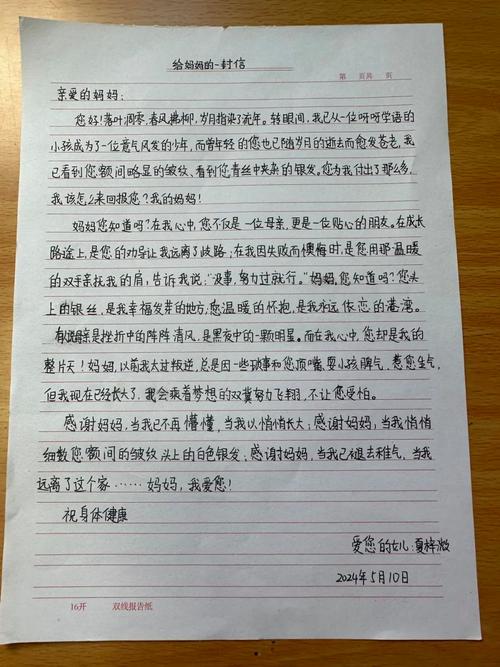 给妈妈的一封信
第 页共 页
亲爱的妈妈：
您好！落叶凋零，春风拂柳，岁月指染了流年。转眼间，我已从一位呀呀学语的
小孩成为了一位意气风发的少年，而曾年轻的您也已随岁月的逝去而愈发苍老，我
已看到您额间略显的皱纹、看到您青丝中夹杂的银发。您为我付出了那么多，
我该怎么来回报您？我的妈妈！
妈妈您知道吗？在我心中，您不仅是一位母亲，更是一位贴心的朋友。在成长
路途上，是您的劝导让我远离了歧路；在我因失败而懊悔时，是您用那温暖
的双手亲抚我的肩，告诉我说："没事，努力过就行。"妈妈，您知道吗？您头
上的银丝，是我幸福发芽的地方；您温暖的怀抱，是我永远依恋的港湾。
有人说母亲是挫折中的阵阵清风，是黑夜中的一颗明星。而在我心中，您却是我的
整片天！妈妈，以前我太过叛逆，总是因一些琐事和您顶嘴，耍小孩脾气，惹您生气，
但我现在已经长大了，我会乘着梦想的双翼努力飞翔，不让您受怕。
感谢妈妈，当我已不再懵懂，当我以悄悄长大；感谢妈妈，当我悄悄
细数您额间的皱纹头上的白色银发；感谢妈妈，当我已褪去稚气，当我
远离了这个家……妈妈，我爱您！
祝身体健康
爱您的女儿：夏梓
2024年5月10日
16开 双线报告纸